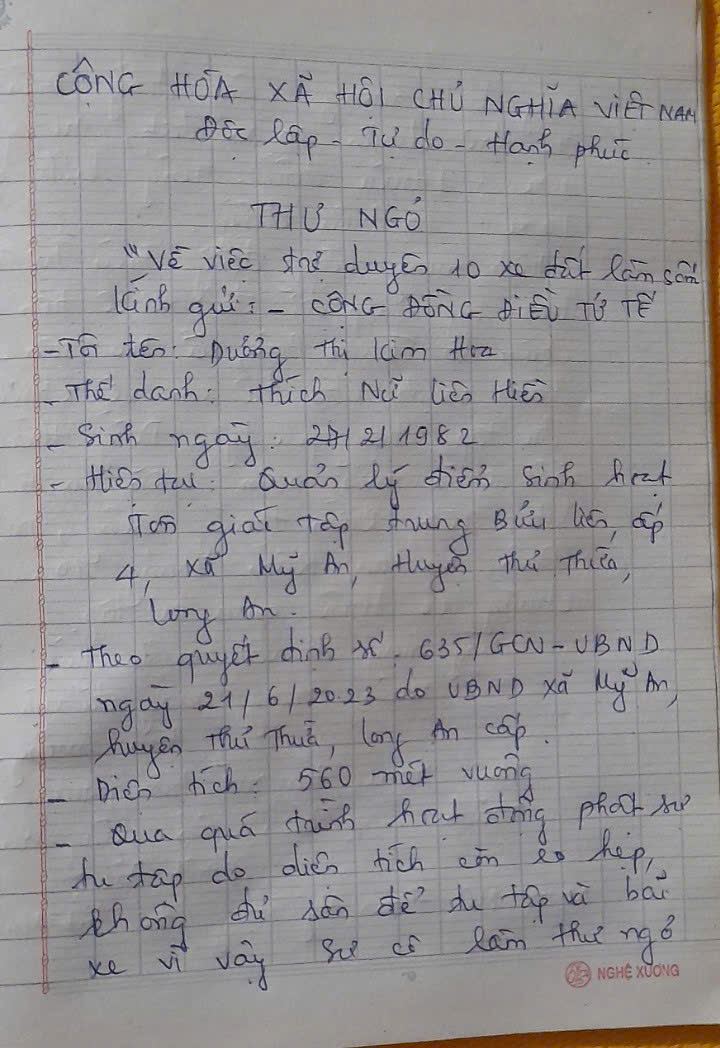 CỘNG HÒA XÃ HỘI CHỦ NGHĨA VIỆT NAM
Độc lập - Tự do - Hạnh phúc
THƯ NGỎ
"Về việc trợ duyên 10 xe đất làm sân
Kính gửi: - CỘNG ĐỒNG ĐIỀU TỬ TẾ
- Tôi tên: Dương Thị Kim Hoa
- Thế danh: Thích Nữ Liên Hiền
- Sinh ngày: 27/2/1982
- Hiện tại: Quản lý điểm sinh hoạt
Tôn giáo tập trung Bửu Liên, ấp
4, xã Mỹ An, Huyện Thủ Thừa,
Long An.
- Theo quyết định số: 635/GCN-UBND
ngày 21/6/2023 do UBND xã Mỹ An,
huyện Thủ Thừa, Long An cấp.
- Diện tích: 560 mét vuông
- Qua quá trình hoạt động phật sự
tu tập do diện tích còn eo hẹp,
không đủ sân để tu tập và bãi
xe vì vậy Sư cô làm thư ngỏ
NGHỆ XƯƠNG